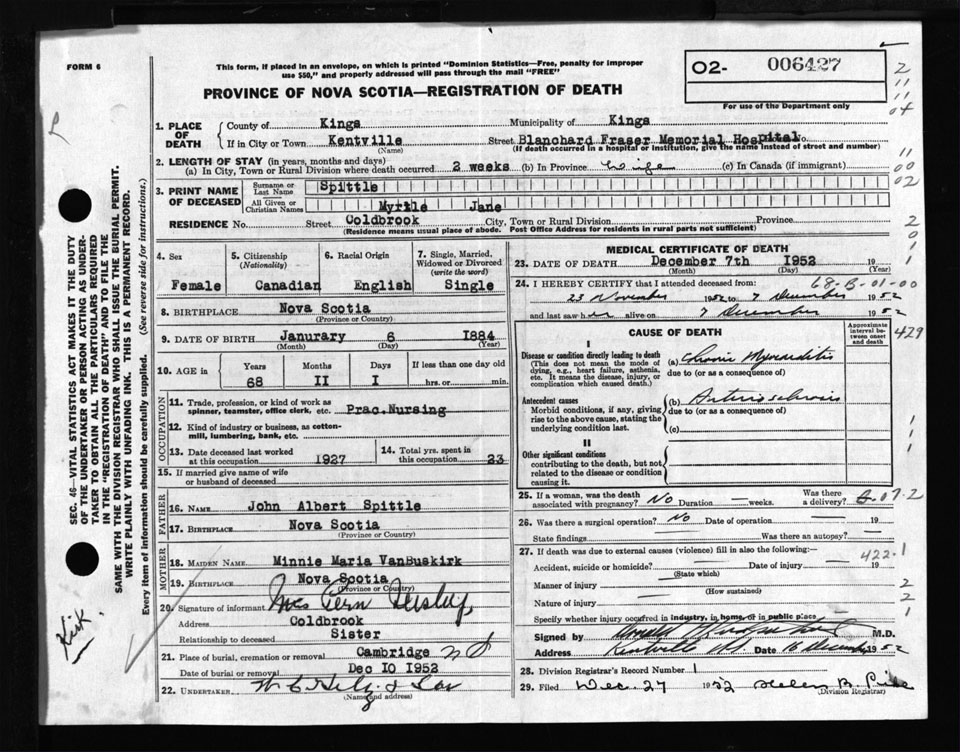 FORM 6
This form, if placed in an envelope, on which is printed "Dominion Statistics—Free, penalty for improper
use $50," and properly addressed will pass through the mail "FREE"
O2- 006427
For use of the Department only
PROVINCE OF NOVA SCOTIA—REGISTRATION OF DEATH
1. PLACE OF DEATH
County of Kings Municipality of Kings
If in City or Town Kentville Street Blanchard Fraser Memorial Hospital No.
(Name) (If death occurred in a hospital or institution, give the name instead of street and number)
2. LENGTH OF STAY (in years, months and days)
(a) In City, Town or Rural Division where death occurred 2 weeks (b) In Province Life (c) In Canada (if immigrant)
3. PRINT NAME OF DECEASED
Surname or Last Name Spittle
All Given or Christian Names Myrtle Jane
RESIDENCE No. Street Coldbrook City, Town or Rural Division Province
(Residence means usual place of abode. Post Office Address for residents in rural parts not sufficient)
4. Sex Female
5. Citizenship (Nationality) Canadian
6. Racial Origin English
7. Single, Married, Widowed or Divorced (write the word) Single
8. BIRTHPLACE Nova Scotia
(Province or Country)
9. DATE OF BIRTH Janurary 6 1884
(Month) (Day) (Year)
10. AGE in Years Months Days If less than one day old
68 II I hrs. or min.
OCCUPATION
11. Trade, profession, or kind of work as
spinner, teamster, office clerk, etc. Prac. Nursing
12. Kind of industry or business, as cotton-
mill, lumbering, bank, etc.
13. Date deceased last worked
at this occupation 1927
14. Total yrs. spent in
this occupation 23
15. If married give name of wife
or husband of deceased
FATHER
16. NAME John Albert Spittle
17. BIRTHPLACE Nova Scotia
(Province or Country)
MOTHER
18. MAIDEN NAME Minnie Maria VanBuskirk
19. BIRTHPLACE Nova Scotia
(Province or Country)
20. Signature of informant Mrs Fern
Address Coldbrook
Relationship to deceased Sister
21. Place of burial, cremation or removal Cambridge N S
Date of burial or removal Dec IO I952
22. UNDERTAKER
(Name and address)
MEDICAL CERTIFICATE OF DEATH
23. DATE OF DEATH December 7th I952 19
(Month) (Day) (Year)
24. I HEREBY CERTIFY that I attended deceased from: 68-B-01-00
23 November 1952 to 7 December 1952
and last saw her alive on 7 December 1952
CAUSE OF DEATH
Approximate interval between onset and death
429
I
Disease or condition directly leading to death (a) Chronic Myocarditis
(This does not mean the mode of
dying, e.g., heart failure, asthenia,
etc. It means the disease, injury, or
complication which caused death.)
due to (or as a consequence of)
Antecedent causes (b) Arteriosclerosis
Morbid conditions, if any, giving
rise to the above cause, stating the
underlying condition last.
due to (or as a consequence of)
(c)
II
Other significant conditions
contributing to the death, but not
related to the disease or condition
causing it.
25. If a woman, was the death
associated with pregnancy? No Duration — weeks. Was there
a delivery?
26. Was there a surgical operation? No Date of operation — 19
State findings Was there an autopsy? —
27. If death was due to external causes (violence) fill in also the following:— 422.1
Accident, suicide or homicide? — Date of injury — 19
(State which)
Manner of injury —
(How sustained)
Nature of injury —
Specify whether injury occurred in industry, in home, or in public place
Signed by M.D.
Address Kentville N.S. Date 16 December 1952
28. Division Registrar's Record Number 1
29. Filed Dec. 27 1952 Helen B.
(Division Registrar)
SEC. 46—VITAL STATISTICS ACT MAKES IT THE DUTY
OF THE UNDERTAKER OR PERSON ACTING AS UNDER-
TAKER TO OBTAIN ALL THE PARTICULARS REQUIRED
IN THE "REGISTRATION OF DEATH" AND TO FILE THE
SAME WITH THE DIVISION REGISTRAR WHO SHALL ISSUE THE BURIAL PERMIT.
WRITE PLAINLY WITH UNFADING INK. THIS IS A PERMANENT RECORD.
Every item of information should be carefully supplied. (See reverse side for instructions.)
Kirk.